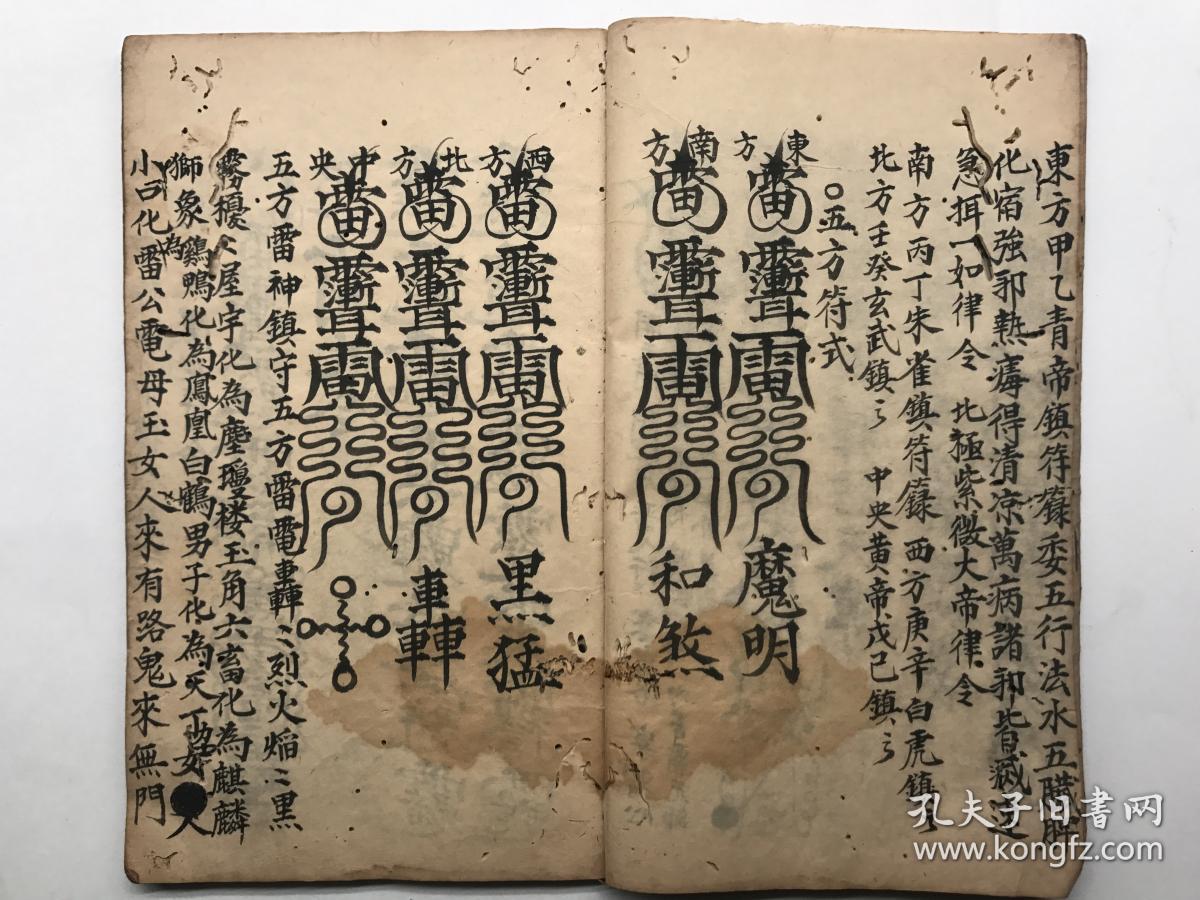 東方甲乙青帝鎮符籙委五行法水五臟
化宿強卭熱瘴得清凉萬病諸卭皆滅
急拑一如律令 北極紫微大帝律令
南方丙丁朱雀鎮符籙 西方庚辛白虎鎮
北方壬癸玄武鎮 中央黄帝戊己鎮
○五方符式
東方 魔明
南方 和煞
西方 黑猛
北方 車轉
中央
五方雷神鎮守五方雷電轟〻烈火焰〻黑
霧擾〻屋宇化為塵瓊楼玉角六畜化為麒麟
獅象為鷄鴨化為鳳凰白鶴男子化為天丁女人
小口化雷公電母玉女人來有路鬼來無門
孔夫子旧书网
www.kongfz.com